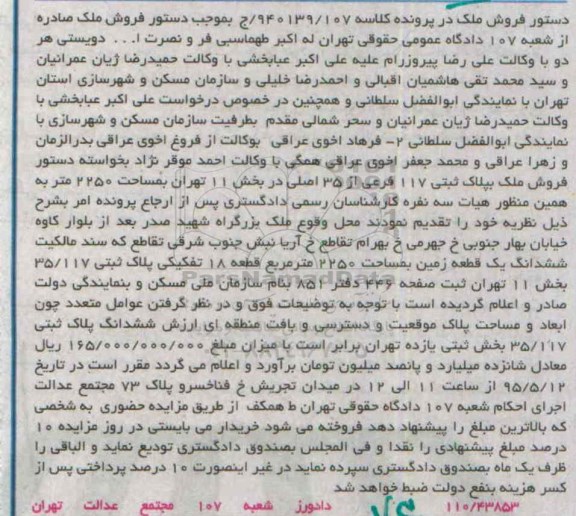 دستور فروش ملک در پرونده کلاسه ۹۴۰۱۳۹/۱۰۷/ج بموجب دستور فروش ملک صادره
از شعبه ۱۰۷ دادگاه عمومی حقوقی تهران له اکبر طهماسبی فر و نصرت ا... دویستی هر
دو با وکالت علی رضا پیروزرام علیه علی اکبر عبابخشی با وکالت حمیدرضا ژیان عمرانیان
و سید محمد تقی هاشمیان اقبالی و احمدرضا خلیلی و سازمان مسکن و شهرسازی استان
تهران با نمایندگی ابوالفضل سلطانی و همچنین در خصوص درخواست علی اکبر عبابخشی با
وکالت حمیدرضا ژیان عمرانیان و سحر شمالی مقدم بطرفیت سازمان مسکن و شهرسازی با
نمایندگی ابوالفضل سلطانی ۲- فرهاد اخوی عراقی بوکالت از فروغ اخوی عراقی بدرالزمان
و زهرا عراقی و محمد جعفر اخوی عراقی همگی با وکالت احمد موقر نژاد بخواسته دستور
فروش ملک بپلاک ثبتی ۱۱۷ فرعی از ۳۵ اصلی در بخش ۱۱ تهران بمساحت ۲۲۵۰ متر به
همین منظور هیات سه نفره کارشناسان رسمی دادگستری پس از ارجاع پرونده امر بشرح
ذیل نظریه خود را تقدیم نمودند محل وقوع ملک بزرگراه شهید صدر بعد از بلوار کاوه
خیابان بهار جنوبی خ جهرمی خ بهرام تقاطع خ آریا نبش جنوب شرقی تقاطع که سند مالکیت
ششدانگ یک قطعه زمین بمساحت ۲۲۵۰ مترمربع قطعه ۱۸ تفکیکی پلاک ثبتی ۳۵/۱۱۷
بخش ۱۱ تهران ثبت صفحه ۴۴۶ دفتر ۸۵۱ بنام سازمان ملی مسکن و بنمایندگی دولت
صادر و اعلام گردیده است با توجه به توضیحات فوق و در نظر گرفتن عوامل متعدد چون
ابعاد و مساحت پلاک موقعیت و دسترسی و بافت منطقه ای ارزش ششدانگ پلاک ثبتی
۳۵/۱۱۷ بخش ثبتی یازده تهران برابر است با میزان مبلغ ۱۶۵/۰۰۰/۰۰۰/۰۰۰ ریال
معادل شانزده میلیارد و پانصد میلیون تومان برآورد و اعلام می گردد مقرر است در تاریخ
۹۵/۵/۱۲ از ساعت ۱۱ الی ۱۲ در میدان تجریش خ فناخسرو پلاک ۷۳ مجتمع عدالت
اجرای احکام شعبه ۱۰۷ دادگاه حقوقی تهران ط همکف از طریق مزایده حضوری به شخصی
که بالاترین مبلغ را پیشنهاد دهد فروخته می شود خریدار می بایستی در روز مزایده ۱۰
درصد مبلغ پیشنهادی را نقدا و فی المجلس بصندوق دادگستری تودیع نماید و الباقی را
ظرف یک ماه بصندوق دادگستری سپرده نماید در غیر اینصورت ۱۰ درصد پرداختی پس از
کسر هزینه بنفع دولت ضبط خواهد شد
۱۱۰/۴۳۸۵۳ دادورز شعبه ۱۰۷ مجتمع عدالت تهران